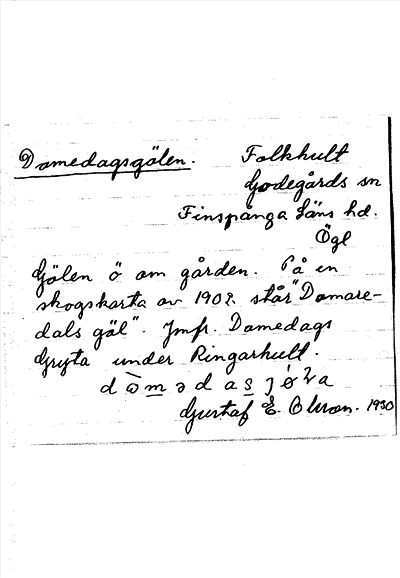 Domedagsgölen. Folkhult
Godegårds sn
Finspånga läns hd.
Ögl
Gölen ö om gården. På en
skogskarta av 1902 står "Domare-
dals göl". Jmfr. Domedags
Gryta under Ringarhult.
Gustaf E. Olson. 1930